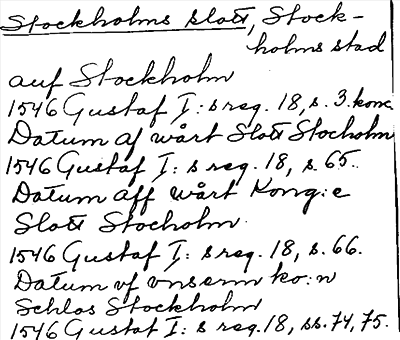 Stockholms slott, Stock-
holms stad
auf Stockholm
1546 Gustaf I:s reg. 18, s. 3. konc
Datum af wårt Slott Stocholm
1546 Gustaf I:s reg. 18, s. 65.
Datum aff wårt Kong:e
Slott Stocholm
1546 Gustaf I:s reg. 18, s. 66.
Datum vf vnserm ko:n
Schlos Stockholm
1546 Gustaf I:s reg. 18, ss. 74, 75.